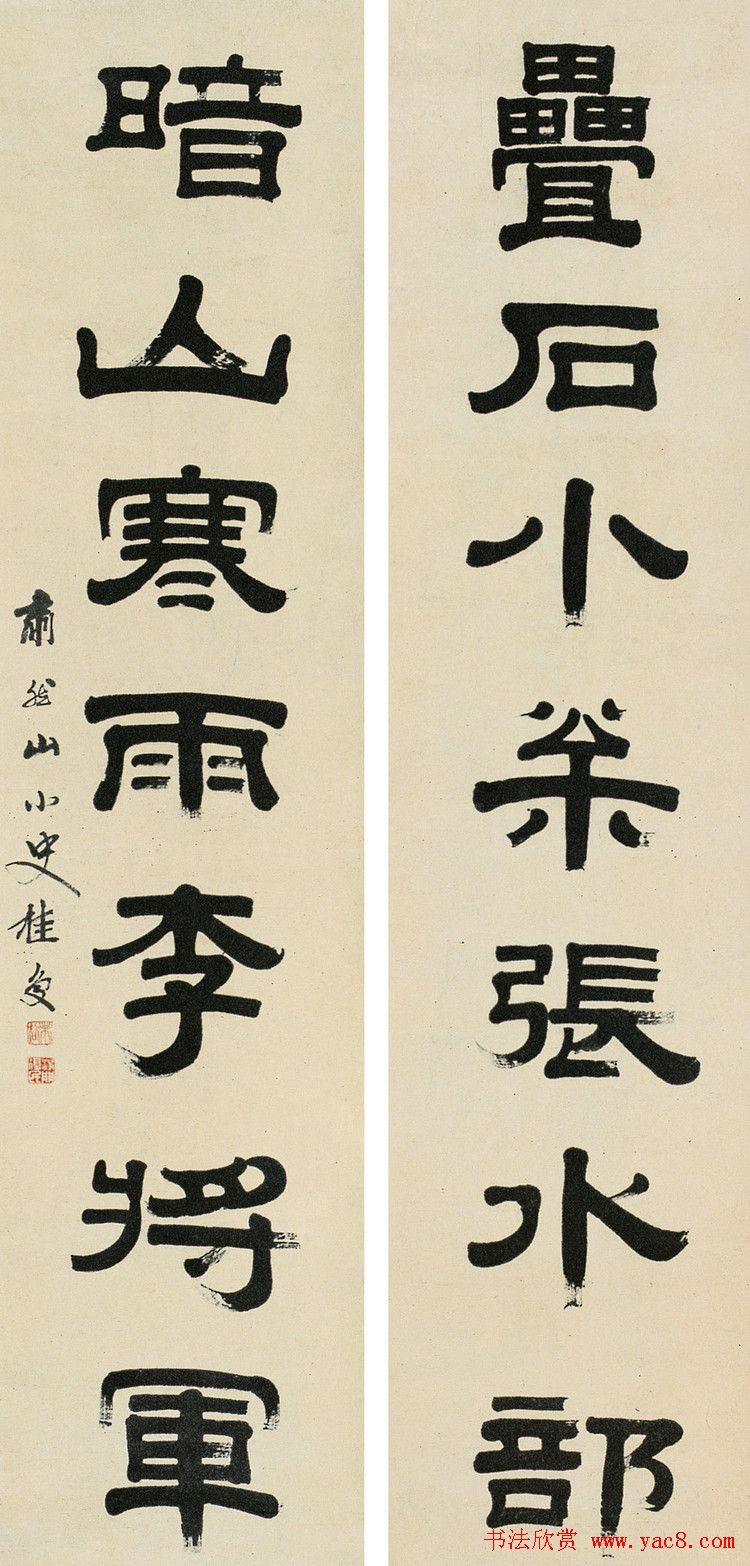 疊石小枀張水部
暗山寒雨李將軍
肅然山小史桂复
书法欣赏 www.yac8.com